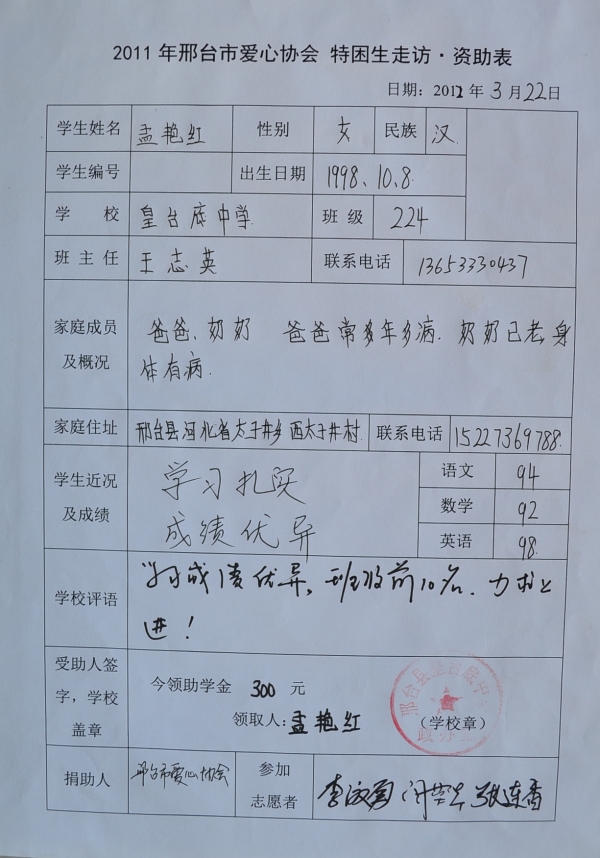 2011年邢台市爱心协会 特困生走访·资助表
日期：2012年3月22日
学生姓名 孟艳红 性别 女 民族 汉
学生编号 出生日期 1998、10、8
学 校 皇台底中学 班 级 224
班 主 任 王志英 联系电话 13653330437
家庭成员 爸爸、奶奶 爸爸常多年多病. 奶奶已老,身
及概况 体有病.
家庭住址 邢台县河北省太子井乡西太子井村 联系电话 15227369788
学生近况 学习扎实 语文 94
及成绩 成绩优异 数学 92
英语 98
学校评语 成绩优异, 班级前10名. 力求上
进!
受助人签
字，学校
盖章
今领助学金 300 元
领取人：孟艳红 （学校章）
捐助人 邢台市爱心协会 参加
志愿者